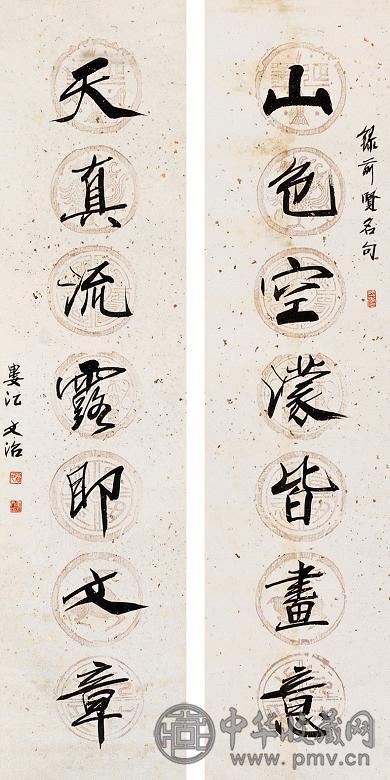 錄前賢名句
山色空濛皆畫意
天真流露即文章
婁江文治
中华收藏网
www.pmv.cn